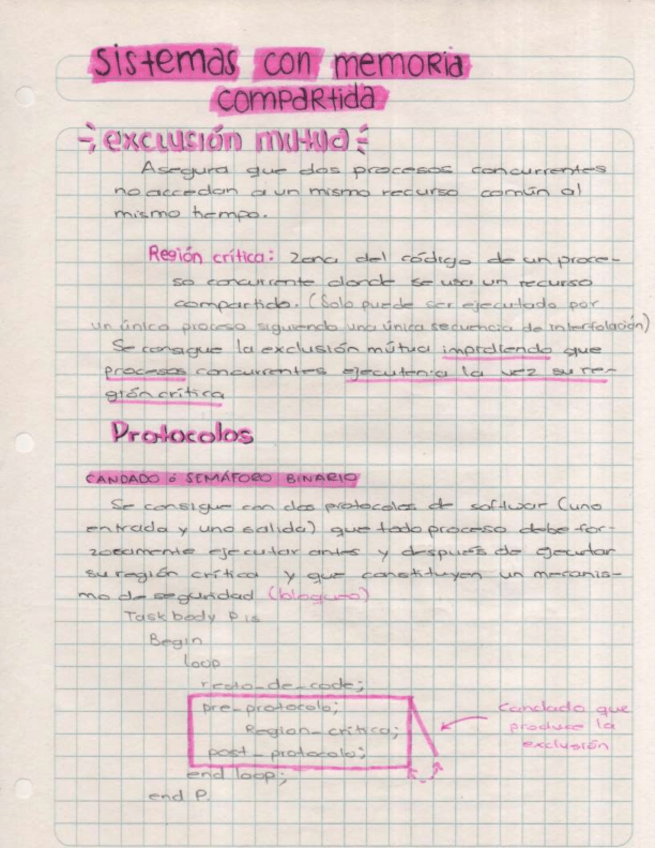 sistemas con memoria
compartida
exclusión mutua
Asegura que dos procesos concurrentes
no accedan a un mismo recurso común al
mismo tiempo.
Región crítica: Zona del código de un proce-
so concurrente donde se usa un recurso
compartido. (Solo puede ser ejecutado por
un único proceso siguiendo una única secuencia de interfolación)
Se consigue la exclusión mútua impidiendo que
procesos concurrentes ejecuten a la vez su re-
gión crítica
Protocolos
CANDADO ó SEMÁFORO BINARIO
Se consigue con dos protocolos de softwar (uno
entrada y uno salida) que todo proceso debe for-
zocamente ejecutar antes y después de ejecutar
su región crítica y que constituyen un mecanis-
mo de seguridad (bloqueo)
Task body P is
Begin
loop
resto_de_code;
pre_protocolo;
Region_critica;
post_protocolo;
end loop;
end P.
Candado que
produce la
exclusión